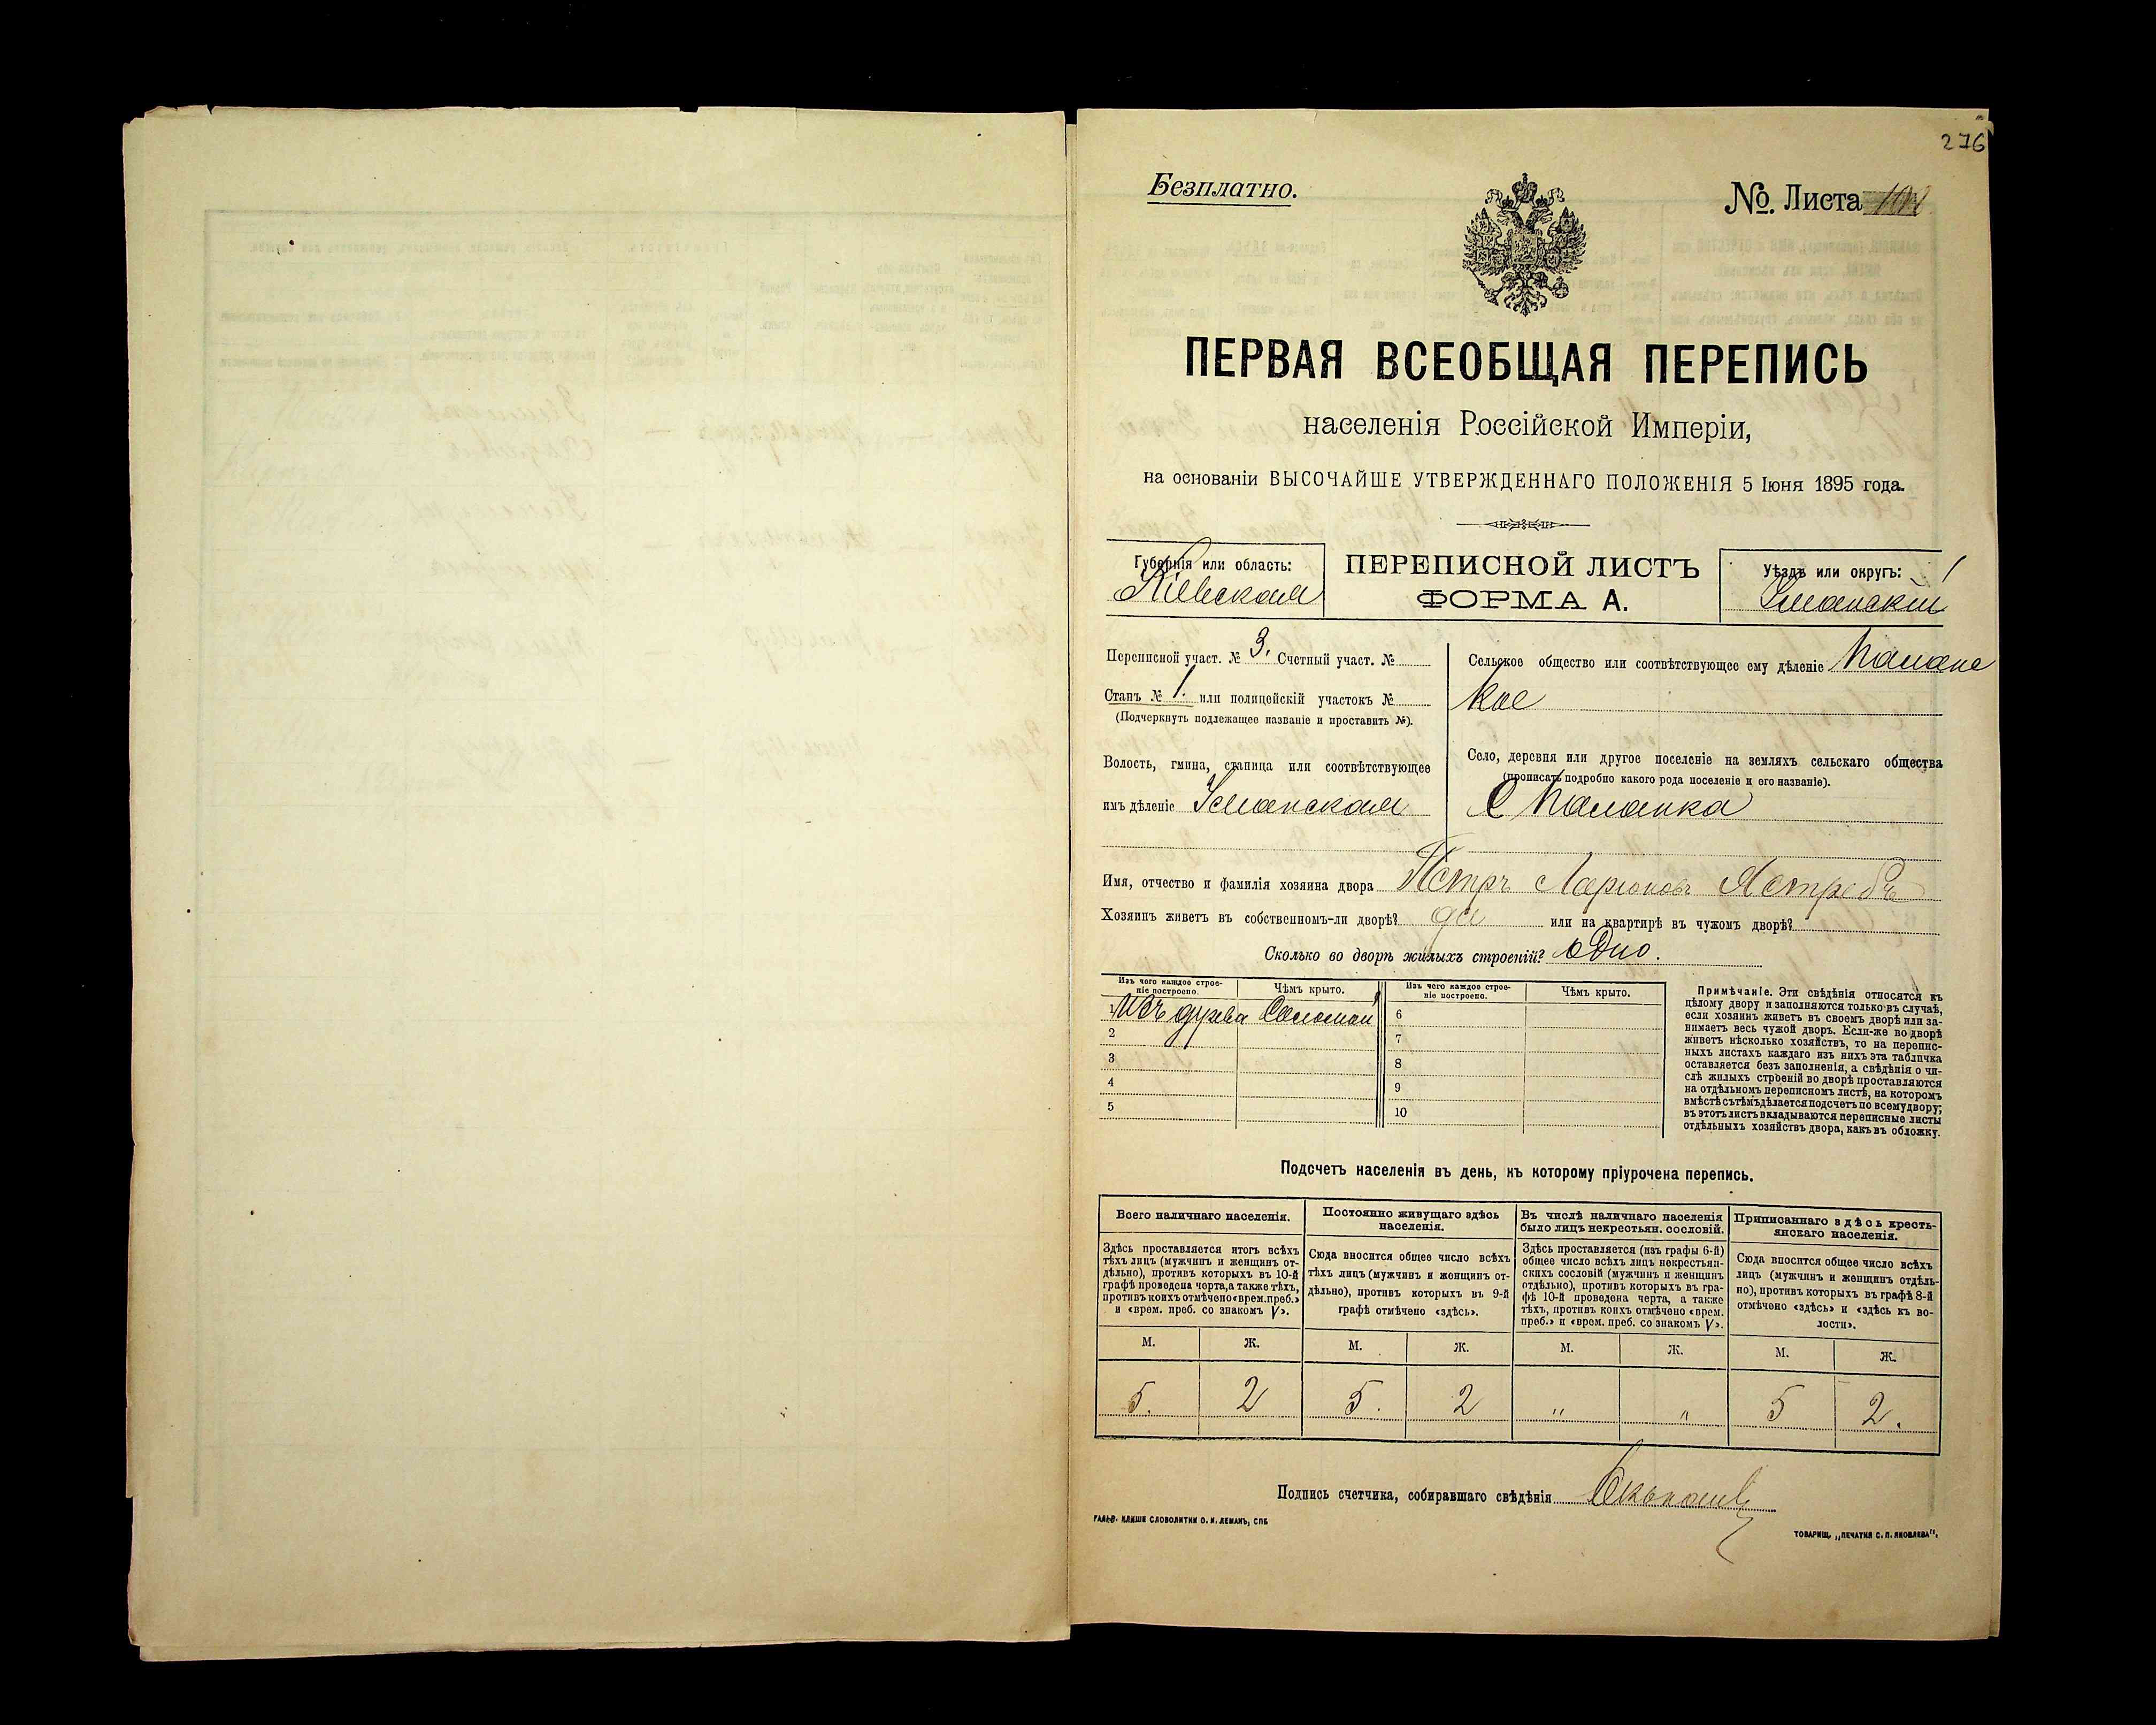 276
Безплатно.
№ Листа
ПЕРВАЯ ВСЕОБЩАЯ ПЕРЕПИСЬ
населенія Россійской Имперіи,
на основаніи ВЫСОЧАЙШЕ УТВЕРЖДЕННАГО ПОЛОЖЕНІЯ 5 Іюня 1895 года.
Губернія или область:
Кіевская
ПЕРЕПИСНОЙ ЛИСТЪ
ФОРМА А.
Уѣздъ или округъ:
Уманскій
Переписной участ. № 3. Счетный участ. №
Станъ № 1. или полицейскій участокъ №
(Подчеркнуть подлежащее названіе и проставить №).
Волость, гмина, станица или соотвѣтствующее
имъ дѣленіе Уманская
Сельское общество или соотвѣтствующее ему дѣленіе Паланс
кое
Село, деревня или другое поселеніе на земляхъ сельскаго общества
(прописать подробно какого рода поселеніе и его названіе).
С Паланка
Имя, отчество и фамилія хозяина двора Петръ Ларіоновъ Ястребъ
Хозяинъ живетъ въ собственномъ-ли дворѣ? да или на квартирѣ въ чужомъ дворѣ?
Сколько во дворѣ жилыхъ строеній? одно.
Изъ чего каждое строе-
ніе построено.
Чѣмъ крыто.
Изъ чего каждое строе-
ніе построено.
Чѣмъ крыто.
1 Изъ дерева Соломой
2
3
4
5
6
7
8
9
10
Примѣчаніе. Эти свѣдѣнія относятся къ
цѣлому двору и заполняются только въ случаѣ,
если хозяинъ живетъ въ своемъ дворѣ или за-
нимаетъ весь чужой дворъ. Если-же во дворѣ
живетъ нѣсколько хозяйствъ, то на перепис-
ныхъ листахъ каждаго изъ нихъ эта табличка
оставляется безъ заполненія, а свѣдѣнія о чи-
слѣ жилыхъ строеній во дворѣ проставляются
на отдѣльномъ переписномъ листѣ, на которомъ
вмѣстѣ съ тѣмъ дѣлается подсчетъ по всему двору;
въ этотъ листъ вкладываются переписные листы
отдѣльныхъ хозяйствъ двора, какъ въ обложку.
Подсчетъ населенія въ день, къ которому пріурочена перепись.
Всего наличнаго населенія.
Здѣсь проставляется итогъ всѣхъ
тѣхъ лицъ (мужчинъ и женщинъ от-
дѣльно), противъ которыхъ въ 10-й
графѣ проведена черта, а также тѣхъ,
противъ коихъ отмѣчено «врем. преб.»
и «врем. преб. со знакомъ V».
Постоянно живущаго здѣсь
населенія.
Сюда вносится общее число всѣхъ
тѣхъ лицъ (мужчинъ и женщинъ от-
дѣльно), противъ которыхъ въ 9-й
графѣ отмѣчено «здѣсь».
Въ числѣ наличнаго населенія
было лицъ некрестьян. сословій.
Здѣсь проставляется (изъ графы 6-й)
общее число всѣхъ лицъ некрестьян-
скихъ сословій (мужчинъ и женщинъ
отдѣльно), противъ которыхъ въ гра-
фѣ 10-й проведена черта, а также
тѣхъ, противъ коихъ отмѣчено «врем.
преб.» и «врем. преб. со знакомъ V».
Приписаннаго здѣсь кресть-
янскаго населенія.
Сюда вносится общее число всѣхъ
лицъ (мужчинъ и женщинъ отдѣль-
но), противъ которыхъ въ графѣ 8-й
отмѣчено «здѣсь» и «здѣсь къ во-
лости».
М. Ж. М. Ж. М. Ж. М. Ж.
5. 2 5. 2 " " 5 2.
Подпись счетчика, собиравшаго свѣдѣнія
ГАЛЬВ. КЛИШЕ СЛОВОЛИТНИ О. И. ЛЕМАНЪ, СПБ
ТОВАРИЩ. „ПЕЧАТНЯ С. П. ЯКОВЛЕВА".